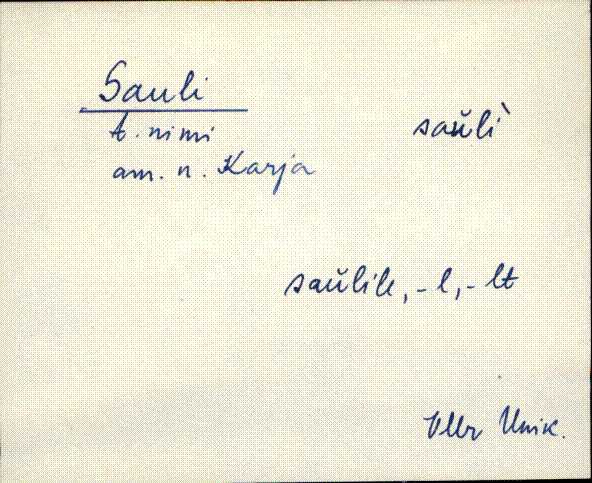 Sauli
t. nimi
saŭlì
am. n. Karja
saŭlile, -l, -lt
Vllr Unik.